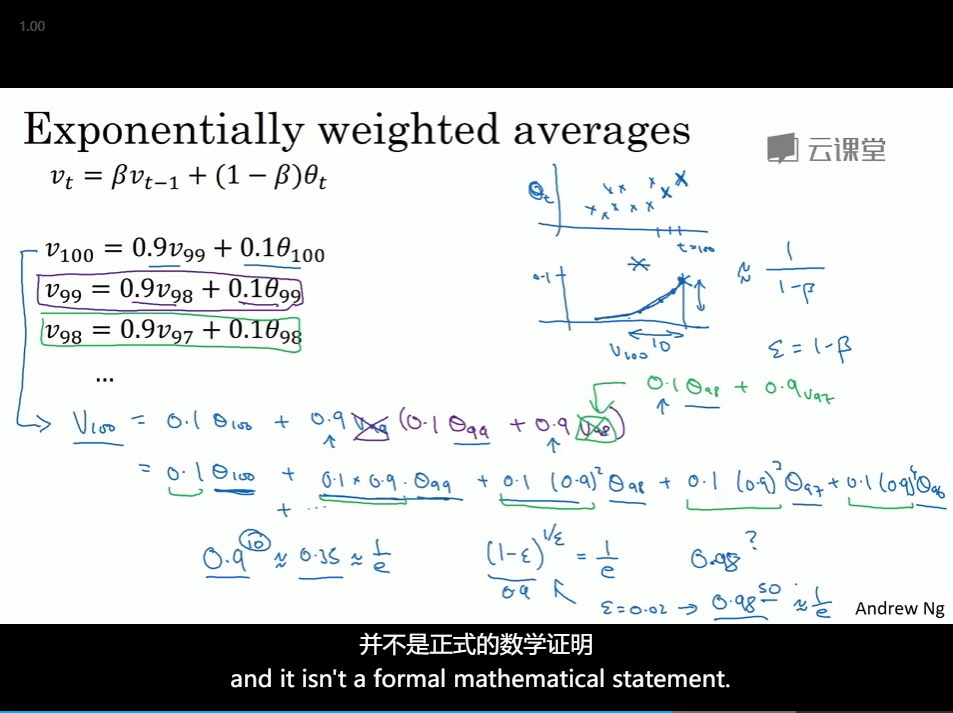 1.00
Exponentially weighted averages
云课堂
vₜ = βvₜ₋₁ + (1 − β)θₜ
θₜ
t=100
v₁₀₀ = 0.9v₉₉ + 0.1θ₁₀₀
v₉₉ = 0.9v₉₈ + 0.1θ₉₉
v₉₈ = 0.9v₉₇ + 0.1θ₉₈
...
0.1
V₁₀₀
10
≈ 1/(1-β)
ε = 1-β
0.1 θ₉₈ + 0.9 V₉₇
V₁₀₀ = 0.1 θ₁₀₀ + 0.9 V₉₉ (0.1 θ₉₉ + 0.9 V₉₈)
= 0.1 θ₁₀₀ + 0.1 × 0.9 · θ₉₉ + 0.1 (0.9)² θ₉₈ + 0.1 (0.9)³ θ₉₇ + 0.1 (0.9)⁴ θ₉₆
+ ...
0.9¹⁰ ≈ 0.35 ≈ 1/e
(1-ε)^(1/ε) = 1/e
0.9
0.98^?
ε = 0.02 → 0.98⁵⁰ ≈ 1/e
Andrew Ng
并不是正式的数学证明
and it isn't a formal mathematical statement.